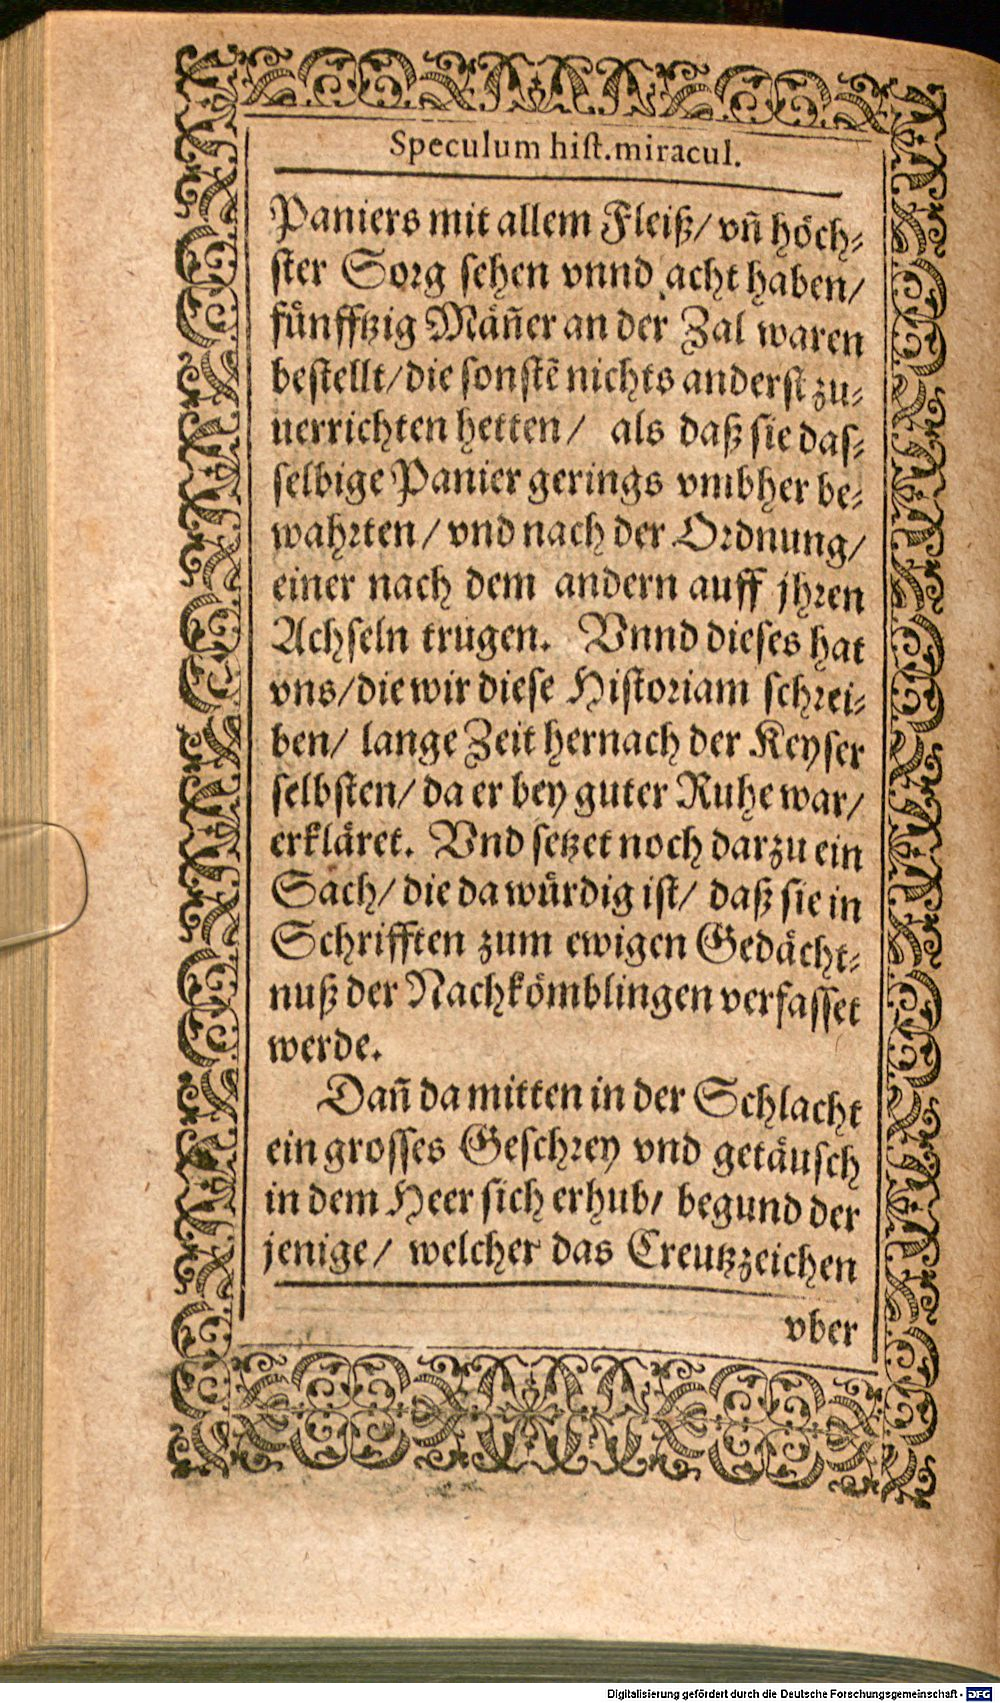 Speculum hiſt.miracul.
Paniers mit allem Fleiß/ vñ höch⸗
ſter Sorg ſehen vnnd acht haben/
fuͤnfftzig Maͤñer an der Zal waren
beſtellt/die ſonſtẽ nichts anderſt zu⸗
uerrichten hetten/ als daß ſie daſ⸗
ſelbige Panier gerings vmbher be⸗
wahrten/ vnd nach der Ordnung/
einer nach dem andern auff jhren
Achſeln trugen. Vnnd dieſes hat
vns/die wir dieſe Hiſtoriam ſchrei⸗
ben/ lange Zeit hernach der Keyſer
ſelbſten/ da er bey guter Ruhe war/
erklaͤret. Vnd ſetzet noch darzu ein
Sach/ die da wuͤrdig iſt/ daß ſie in
Schrifften zum ewigen Gedaͤcht⸗
nuß der Nachkoͤmblingen verfaſſet
werde.
Dañ da mitten in der Schlacht
ein groſſes Geſchrey vnd getaͤuſch
in dem Heer ſich erhub/ begund der
jenige/ welcher das Creutzzeichen
vber
Digitalisierung gefördert durch die Deutsche Forschungsgemeinschaft - DFG